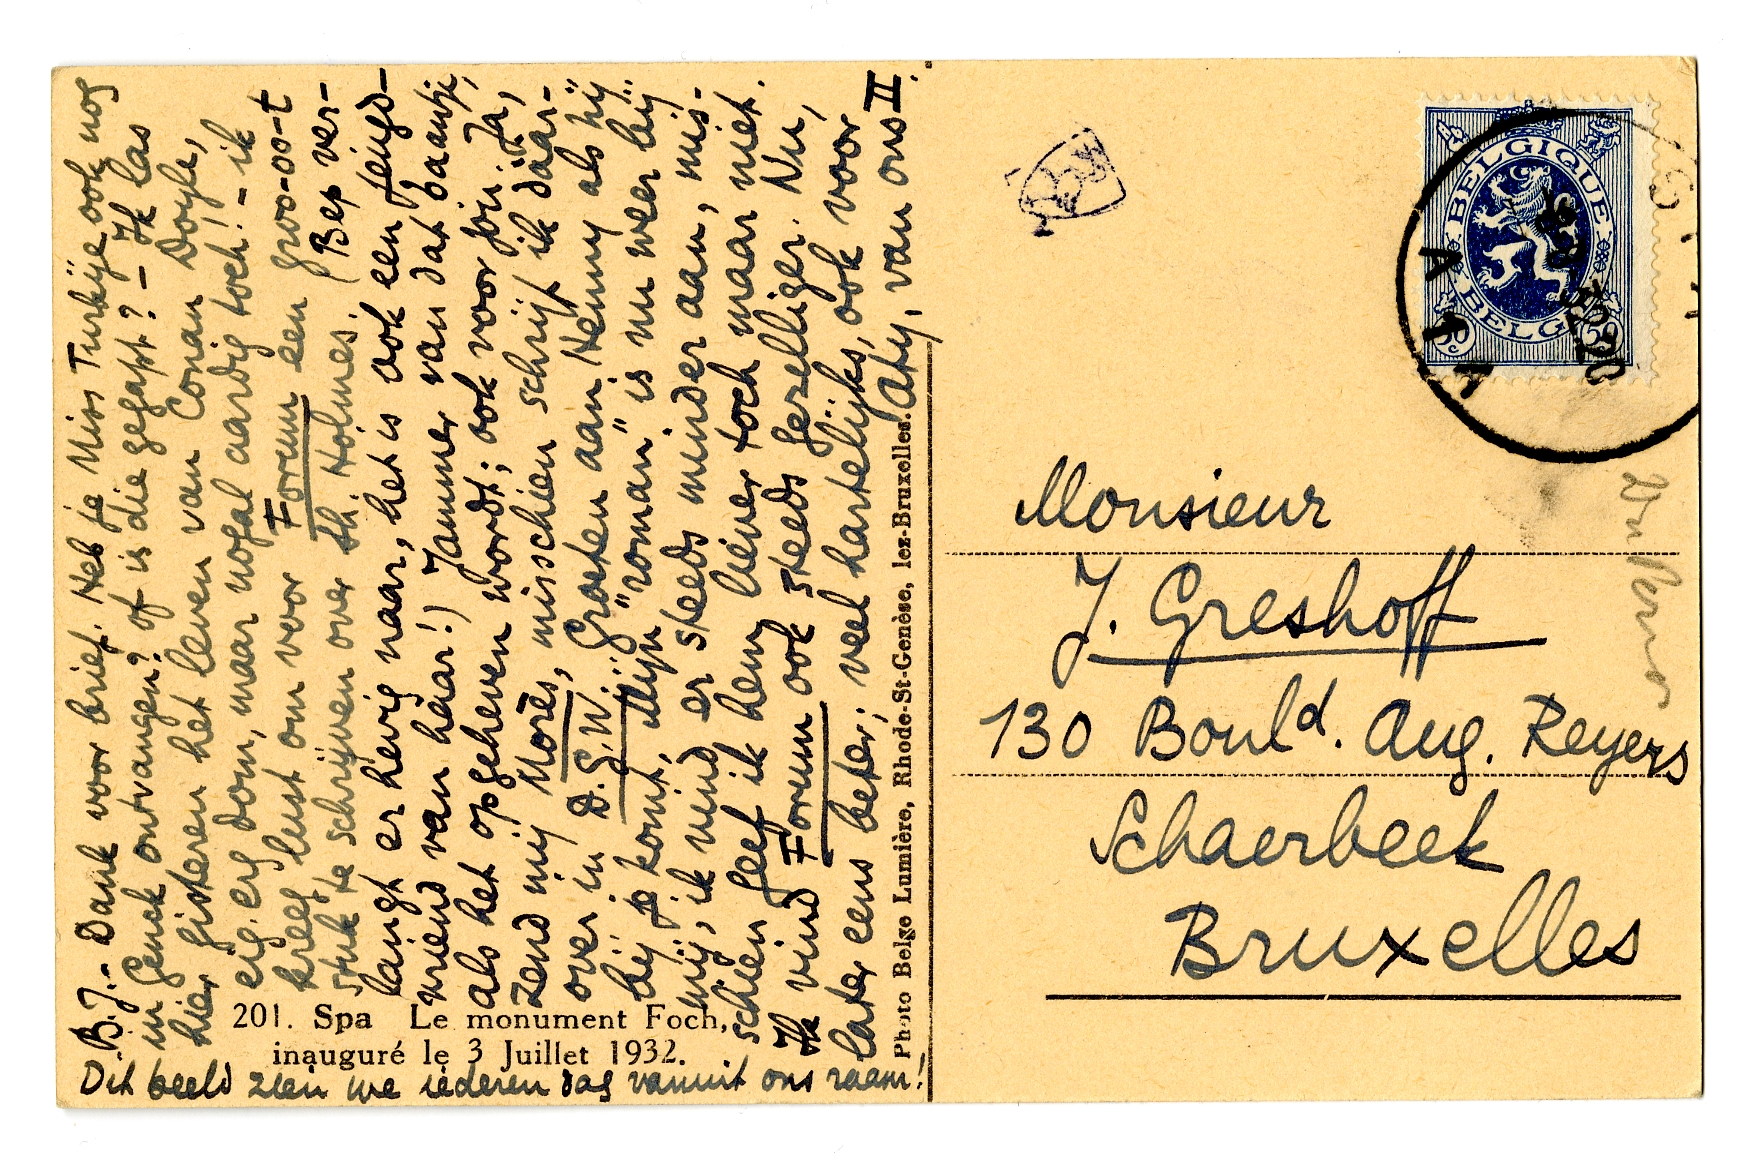 B.J. - Dank voor brief. Heb je Miss Turkije ook nog
in Genck ontvangen? of is die gegapt? - Ik las
hier gisteren het leven van Conan Doyle,
erg, erg dom, maar nogal aardig toch! - ik
kreeg lust om voor Forum een groo-oo-t
stuk te schrijven over Sh. Holmes. (Bep ver-
langt er hevig naar, het is ook een jeugd-
vriend van haar!) Jammer van dat baantje,
als het opgeheven wordt; ook voor jou. Ja,
zend mij Morès, misschien schrijf ik daar-
over in D.G.W. Groeten aan Henny als hij
bij je komt. Mijn "roman" is nu weer bij
mij; ik vind er steeds minder aan, mis-
schien geef ik hem liever toch maar niet.
Ik vind Forum ook steeds gezelliger. Nu,
later eens beter; veel hartelijks, ook voor
Aty, van ons II.
201. Spa Le monument Foch,
inauguré le 3 Juillet 1932.
Dit beeld zien we iederen dag vanuit ons raam!
Photo Belge Lumière, Rhode-St-Genèse, lez-Bruxelles.
BELGIQUE
BELGIË
50 c
50
Monsieur
J. Greshoff
130 Bould. Aug. Reyers
Schaerbeek
Bruxelles
Du Perron